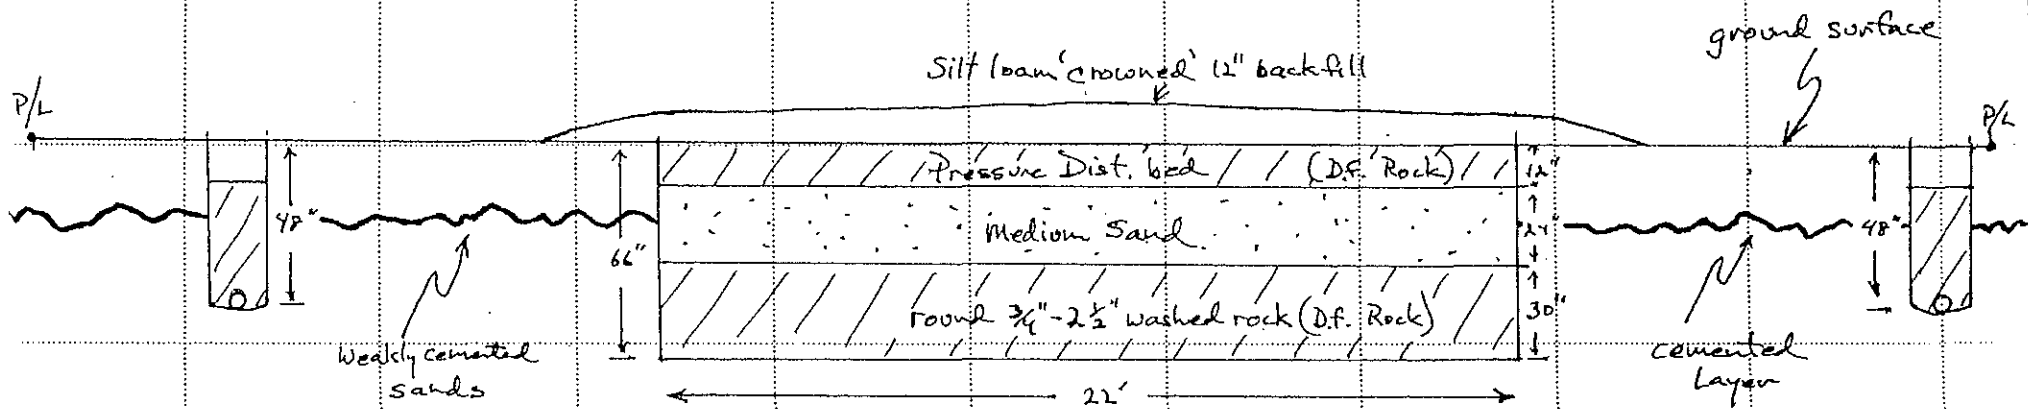 ground surface
Silt loam 'crowned' 12" backfill
P/L
P/L
Pressure Dist. bed (D.f. Rock)
12"
48"
66"
Medium Sand
24"
48"
round 3/4"-2 1/2" washed rock (D.f. Rock)
30"
Weakly cemented
sands
cemented
Layer
22'